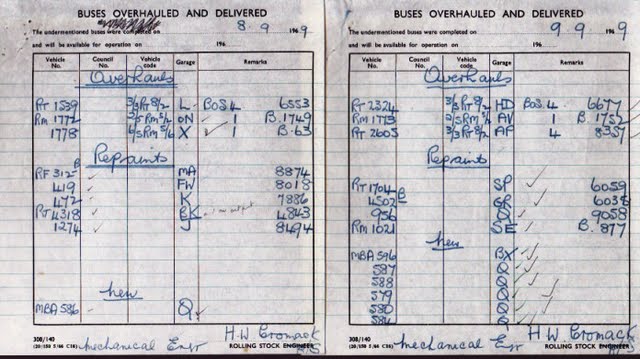 BUSES OVERHAULED AND DELIVERED
The undermentioned buses were completed on 8.9 1969
and will be available for operation on 196
Vehicle No. Council No. Vehicle code Garage Remarks
Overhauls
RT 1539 3/3RT8/2 L BOS.4 6553
RM 1772 5RM5/6 ON 1 B.1749
1778 5RM5/6 X ✓ 1 B.63
Repaints
RF 312 B ✓ MA 8874
419 ✓ FW 8018
472 ✓ K 7886
RT 4318 ✓ BK 4843
1274 ✓ J 8494
New
MBA 586 ✓ Q ✓
308/140 Mechanical Engr H W Cromack
ROLLING STOCK ENGINEER
BUSES OVERHAULED AND DELIVERED
The undermentioned buses were completed on 9.9 1969
and will be available for operation on 196
Vehicle No. Council No. Vehicle code Garage Remarks
Overhauls
RT 2324 3/3RT8/2 HD BOS.4 6677
RM 1773 AV 1 B.1752
RT 2605 3/3RT8/2 AP 4 8357
Repaints
RT 1704 SP ✓ 6059
4502 B GR ✓ 6038
956 Q ✓ 9058
RM 1021 SE ✓ B.877
New
MBA 596 BX ✓
587 Q ✓
588 Q ✓
579 Q ✓
580 Q ✓
584 Q ✓
308/140 Mechanical Engr H W Cromack
ROLLING STOCK ENGINEER